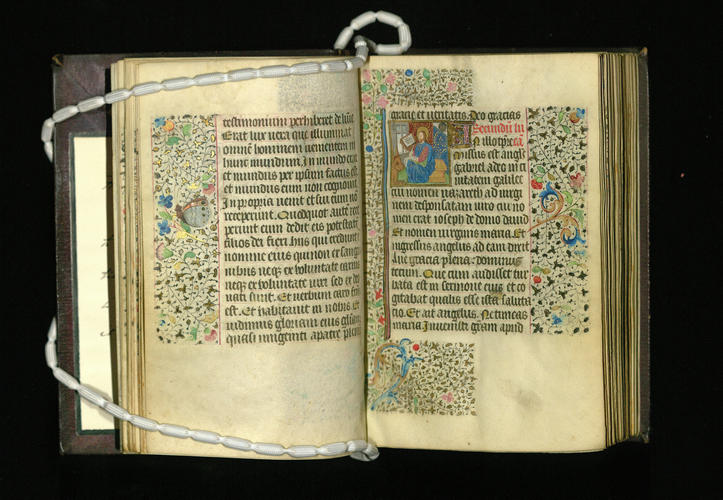 testimonium perhiberet de lumie
Erat lux vera que illuminat
omnem hominem uenientem in
hunc mundum. In mundo erat
et mundus per ipsum factus est
et mundus eum non cognouit
In propria uenit et sui eum no
receperunt. Quotquot aute rece
perunt eum dedit eis potestate
filios dei fieri. his qui credunt i
nomine eius qui non ex sangui
nibus neqz ex voluntate carnis
neqz ex voluntate viri sed ex deo
nati sunt. Et uerbum caro fac
est. Et habitauit in nobis. Et
uidimus gloriam eius gloria
quasi unigeniti a patre plenu
gracie et ueritatis. Deo gracias
Secundu lu
In illo tpre cam
Missus est angls
gabriel a deo in ci
uitatem galilee
cui nomen nazareth ad uirgi
nem desponsatam uiro cui no
men erat ioseph de domo dauid
Et nomen uirginis maria. Et
ingressus angelus ad eam dixit
Aue gracia plena: dominus
tecum. Que cum audisset tur
bata est in sermone eius et co
gitabat qualis esset ista saluta
tio. Et ait angelus. Ne timeas
maria Inuenisti gram apud